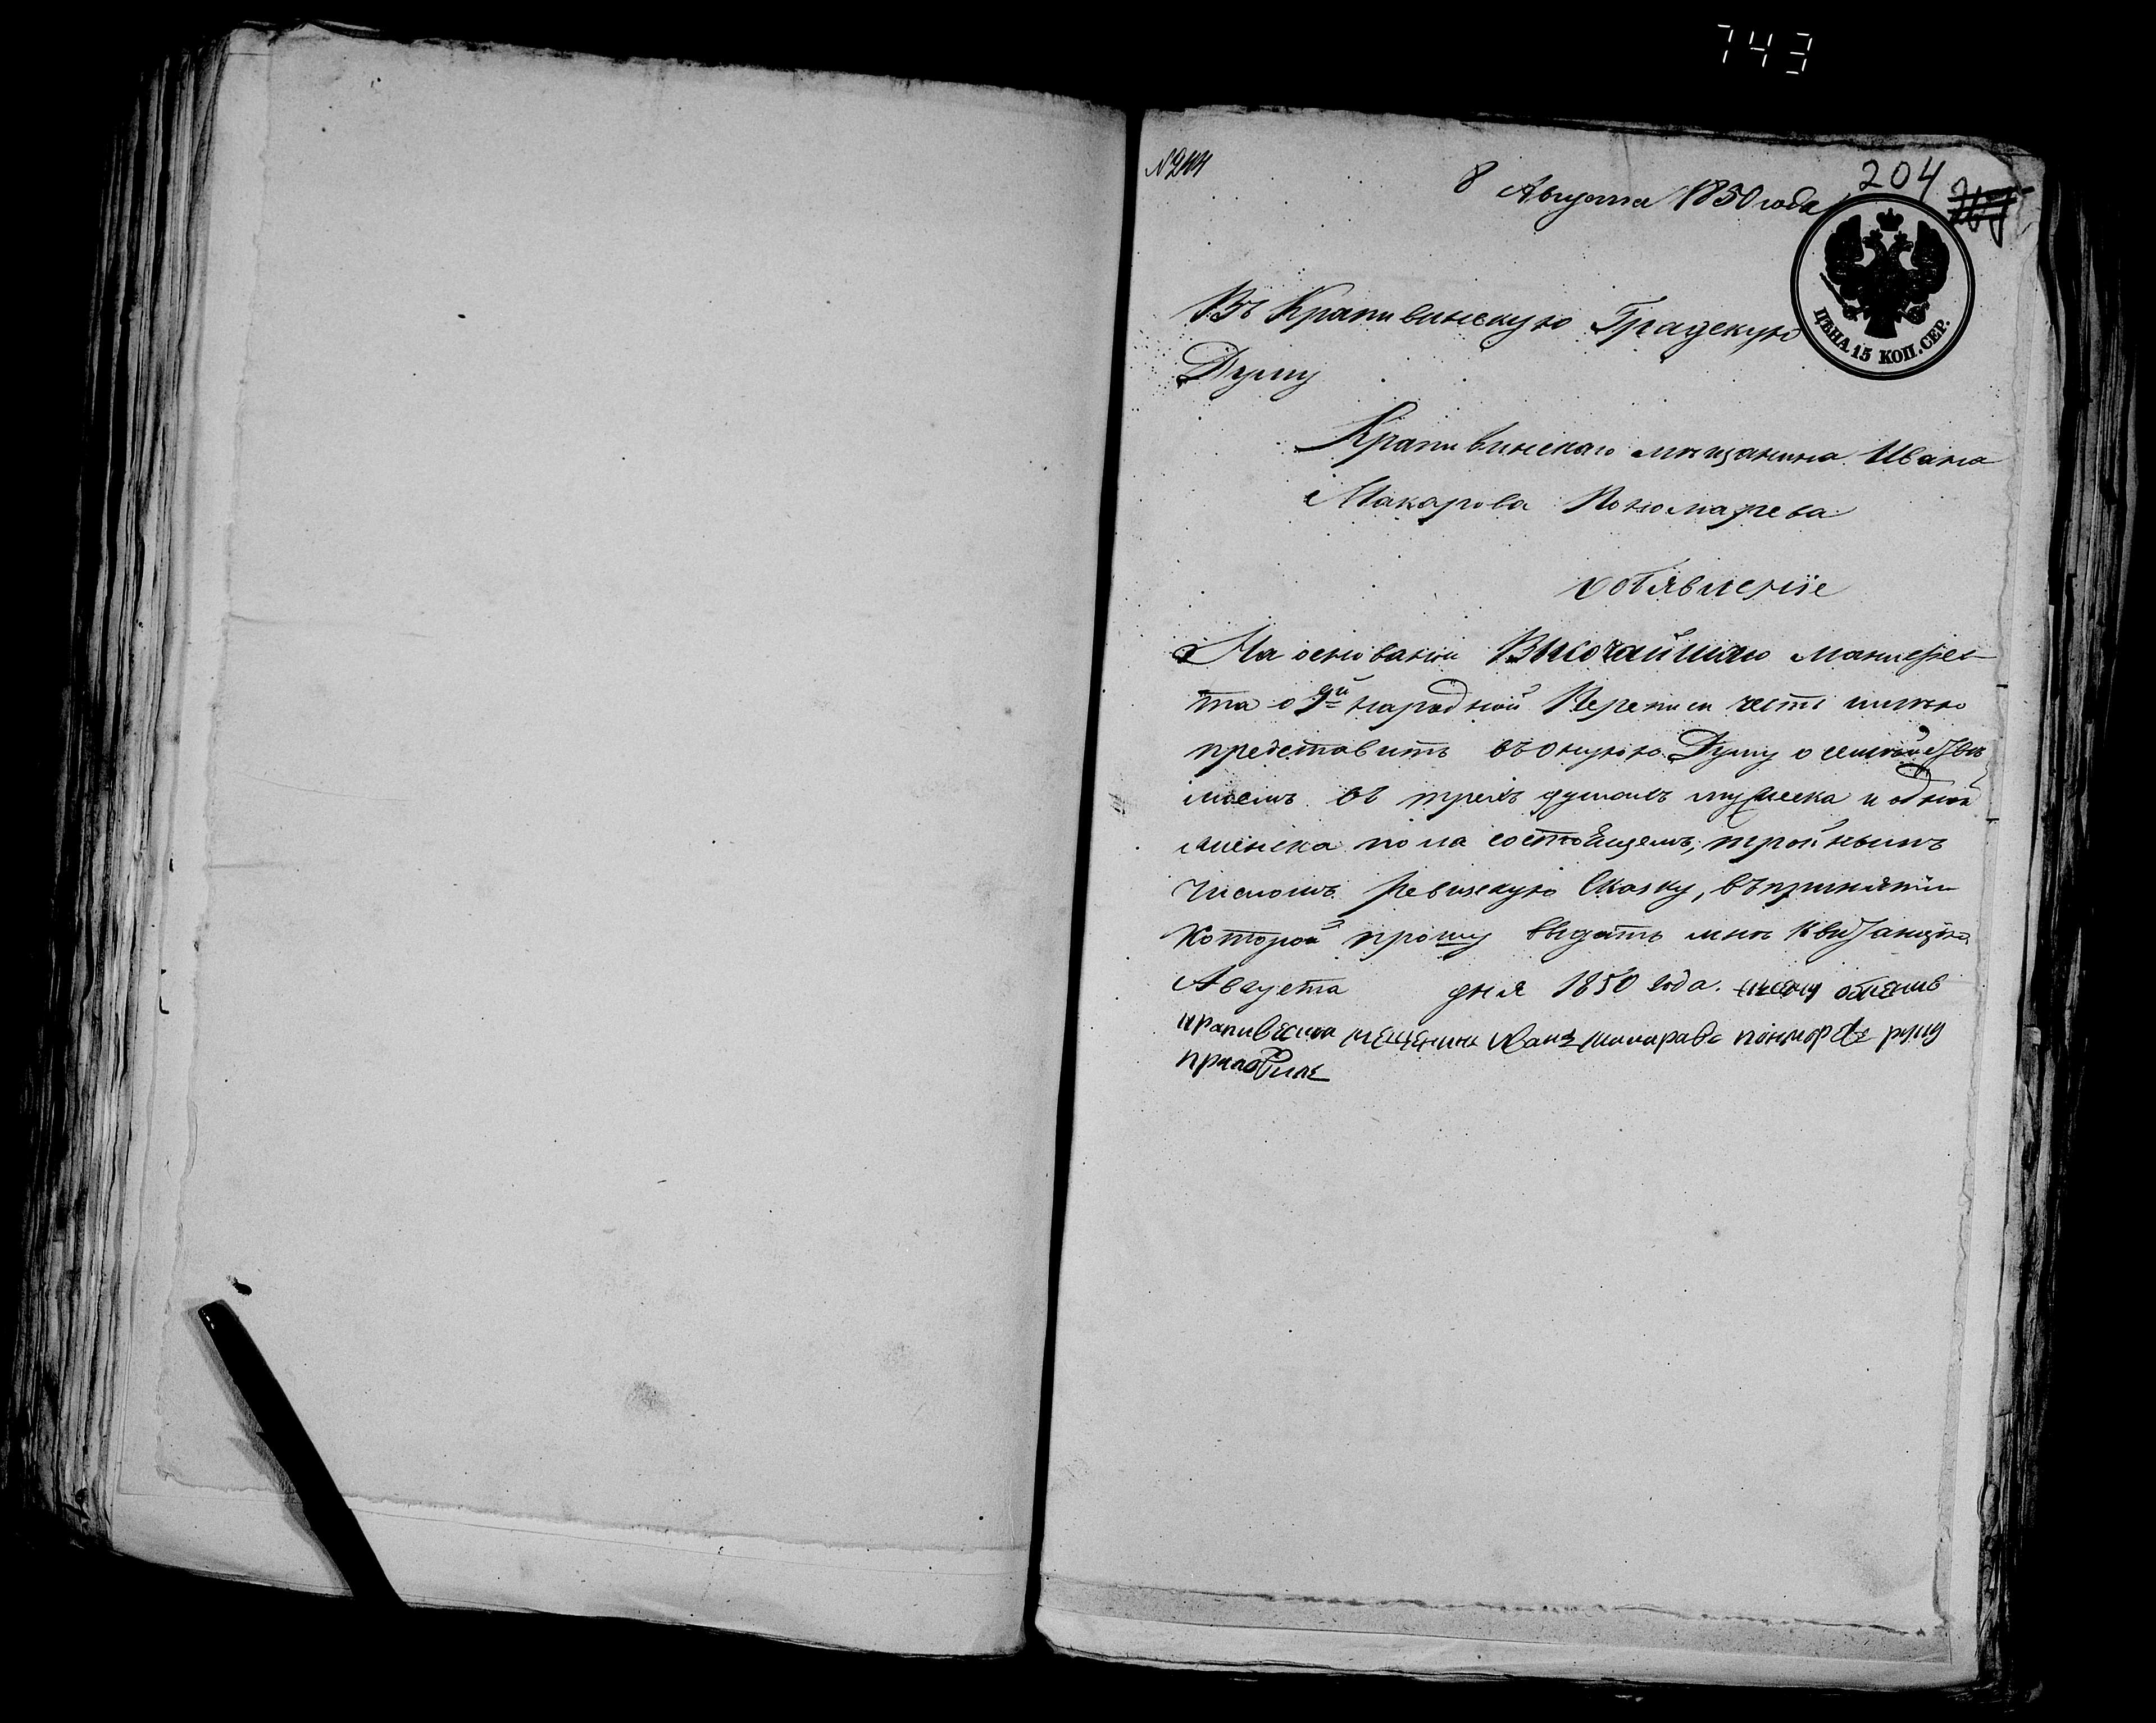 743
204
8 Августа 1850 года
ЦѢНА 15 КОП. СЕР.
Въ Крапивенскую Градскую
Думу
Крапивинскаго мѣщанина Ивана
Макарова Пономарева
обявленіе
На основаніи Высочайшаго манифес-
та о 9й народной Переписи честь имѣю
представить въ оную Думу о семействѣ
моемъ въ трехъ душахъ мужеска и одной
женска пола состоящемъ, тройнымъ
числомъ Ревизскую Сказку, въ принятіи
Которой прошу выдать мнѣ Квитанцію
Августа дня 1850 года. к сему
мещенинъ Иванъ руку
приложиле